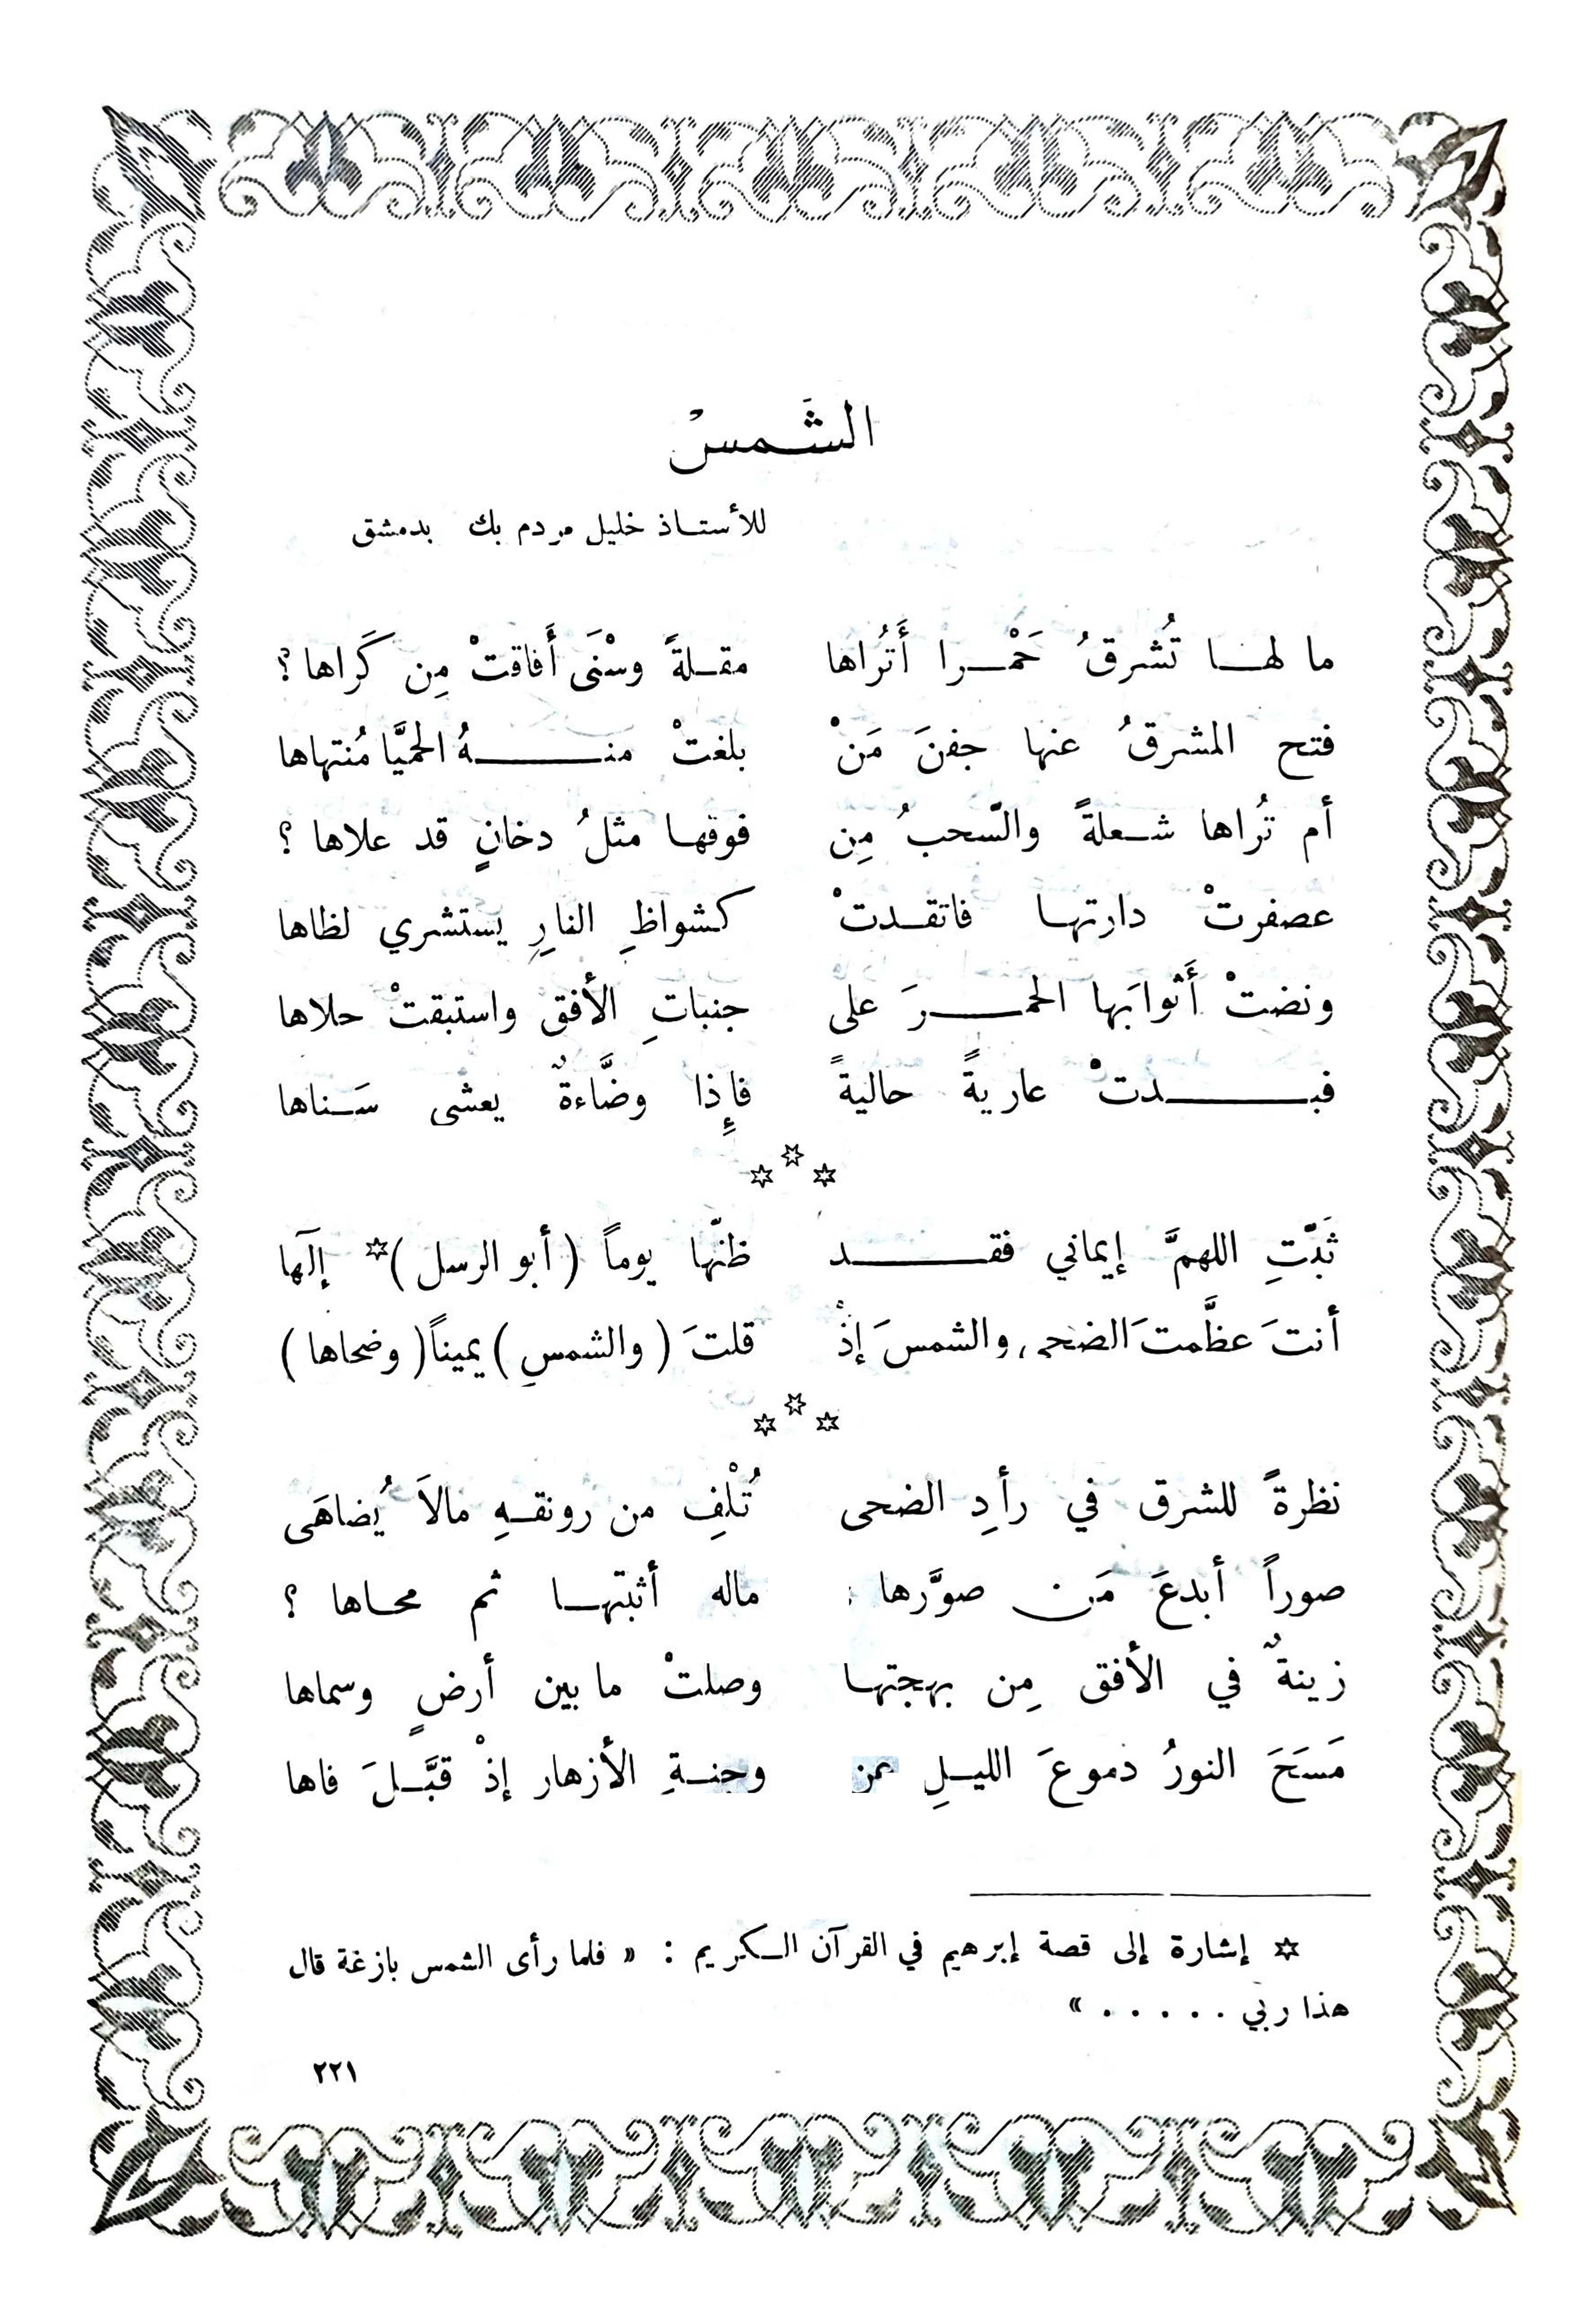 الشَمسْ
للأستاذ خليل مردم بك بدمشق
ما لها تُشرقُ حَمْرا أَتُراها مقلةً وسْنَى أَفاقتْ مِن كَراها ؟
فتح المشرقُ عنها جفنَ مَنْ بلغتْ منهُ الحميَّا مُنتهاها
أم تُراها شعلةً والسّحبُ مِن فوقها مثلُ دخانٍ قد علاها ؟
عصفرتْ دارتها فاتقدتْ كشواظِ النارِ يستشري لظاها
ونضتْ أَثوابَها الحمرَ على جنباتِ الأفق واستبقتْ حلاها
فبدتْ عاريةً حاليةً فإِذا وضَّاءةٌ يعشى سَناها
ثَبّتِ اللهمَّ إيماني فقد ظنّها يوماً ( أبو الرسل )* إلَها
أنتَ عظَّمتَ الضحى والشمسَ إذْ قلتَ ( والشمسِ ) يميناً ( وضحاها )
نظرةً للشرق في رأدِ الضحى تُلْفِ من رونقهِ مالاَ يُضاهَى
صوراً أبدعَ مَن صوَّرها ماله أثبتها ثم محاها ؟
زينةٌ في الأفق مِن بهجتها وصلتْ ما بين أرضٍ وسماها
مَسَحَ النورُ دموعَ الليلِ عن وجنةِ الأزهار إذْ قبَّلَ فاها
* إشارة إلى قصة إبرهيم في القرآن الكريم : « فلما رأى الشمس بازغة قال
هذا ربي . . . . . »
٢٢١